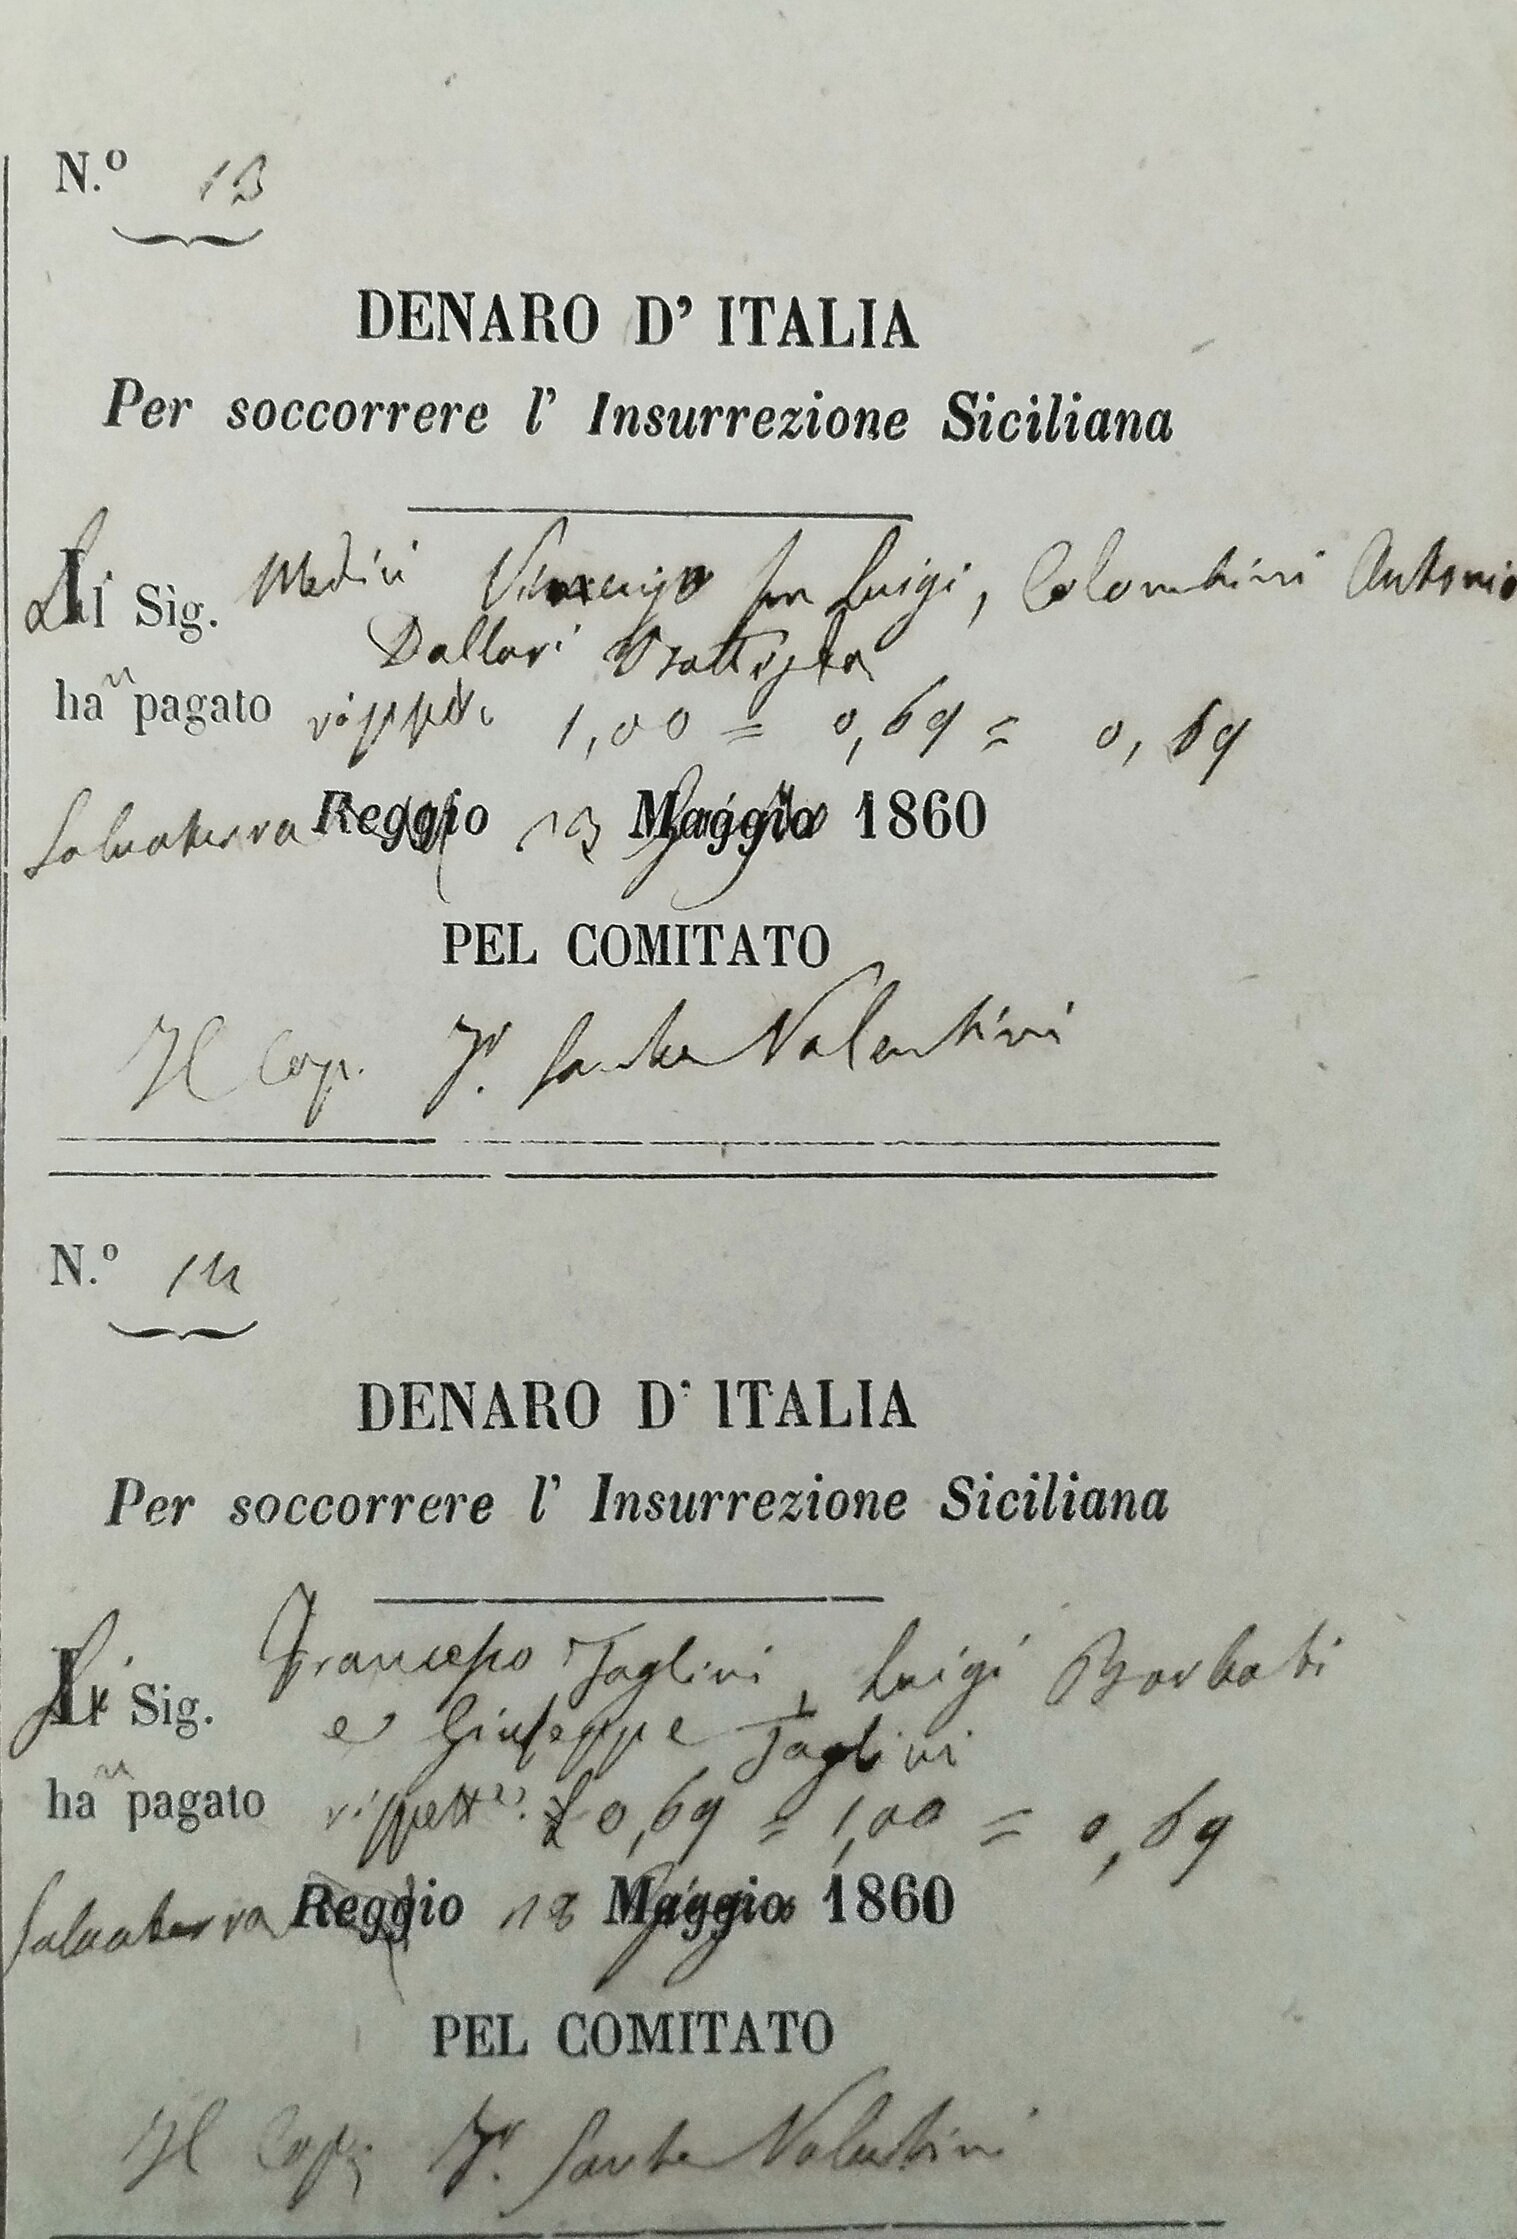 N.º 13
DENARO D' ITALIA
Per soccorrere l' Insurrezione Siciliana
Li Sig. Medici Vincenzo fu Luigi, Colombini Antonio
Dallari Battista
han pagato 1,00 = 0,69 = 0,69
Salvaterra Reggio 13 Maggio 1860
PEL COMITATO
Il Cap. Fr. Sante Valentini
N.º 14
DENARO D' ITALIA
Per soccorrere l' Insurrezione Siciliana
Li Sig. Francesco Taglini, Luigi Barbati
e Giuseppe Taglini
han pagato 0,69 = 1,00 = 0,69
Salvaterra Reggio 18 Maggio 1860
PEL COMITATO
Il Cap. Fr. Sante Valentini